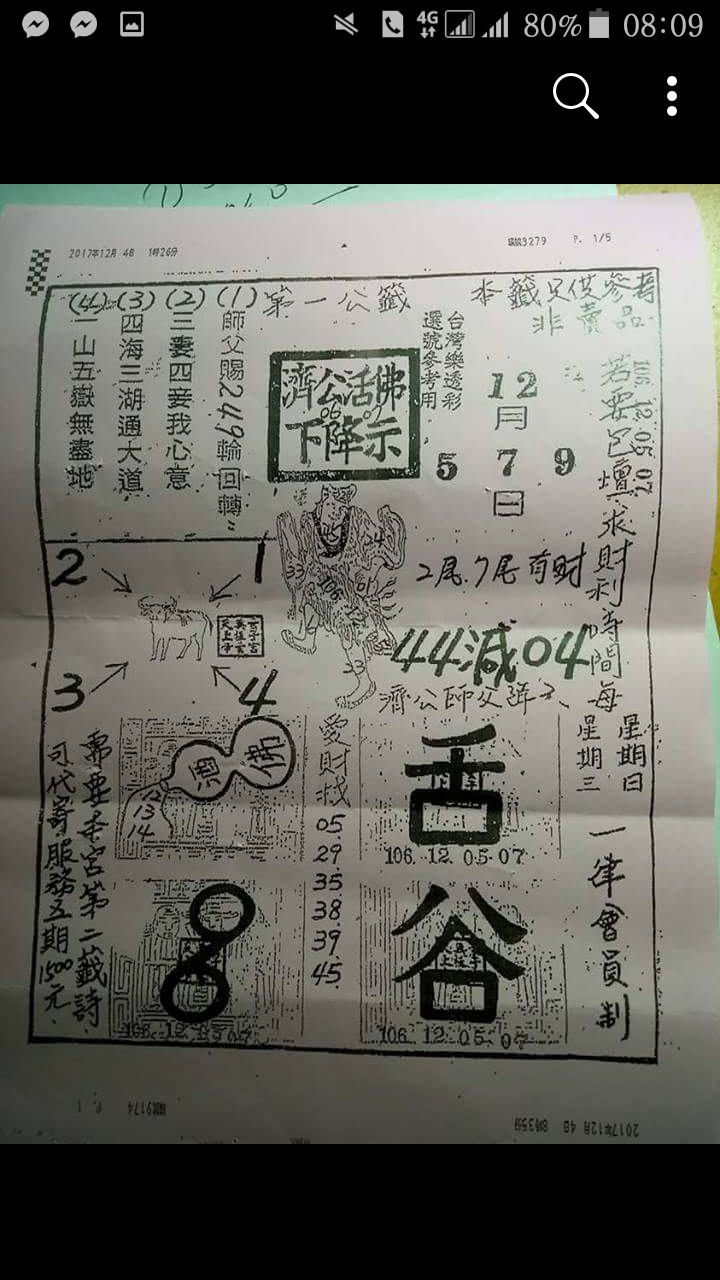 4G 80% 08:09
2017年12月 4日 1時26分
編號3279 P. 1/5
本籤只供參考
非賣品
第一公籤
(1) 師父賜249輪回轉
(2) 三妻四妾我心意
(3) 四海三湖通大道
(4) 二山五嶽無盡地
濟公活佛
06 07
下降示
台灣樂透彩
選號參考用
12
月
5 7 9
日
106. 12. 05. 07
求財利時間每
星期日
星期三
一律會員制
2
1
3
4
45
24
33
106
61
23
2尾.7尾有財
44減04
濟公師父降示
佛
恩
12
13
14
愛財找
05
29
35
38
39
45
舌
106. 12. 05. 07
8
106. 12. 05. 07
谷
106. 12. 05. 07
需要本宮第二籤詩
可代寄服務五期1500元
編號9174 P. 1
2017年12月 4日 8時35分